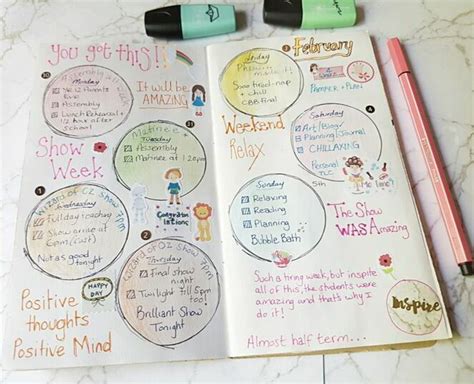 You got this!!
30
Assembly all week
Monday
Yr 12 Parents
Eve
Assembly
Lunch Rehearsal +
1/2 hour after
school
It will be
AMAZING
Show
Week
31
Matinee +
Tuesday
Assembly
Matinee at 1:20pm
1
Wizard of OZ Show 7pm
Wednesday
Full day teaching
Show arrive at
6pm (cast)
Not as good
tonight
Congratulations
2
Wizard of OZ Show 7pm
Thursday
Final show
night
Twilight till 5pm
too!
Brilliant Show
Tonight
HAPPY
DAY
Positive
thoughts
Positive Mind
3
February
Friday
Phew
made it!
nap
+ chill
CBB final
PAMPER + PLAN
Weekend
Relax
4
Saturday
Art/Blog
Planning/Journal
CHILLAXING
Personal
TLC
Me time!
Sunday
5th
Relaxing
Reading
Planning
Bubble Bath
The Show
WAS Amazing
Such a tiring week, but inspite
all of this, the students were
amazing and that's why I
do it!
Inspire
Almost half term...